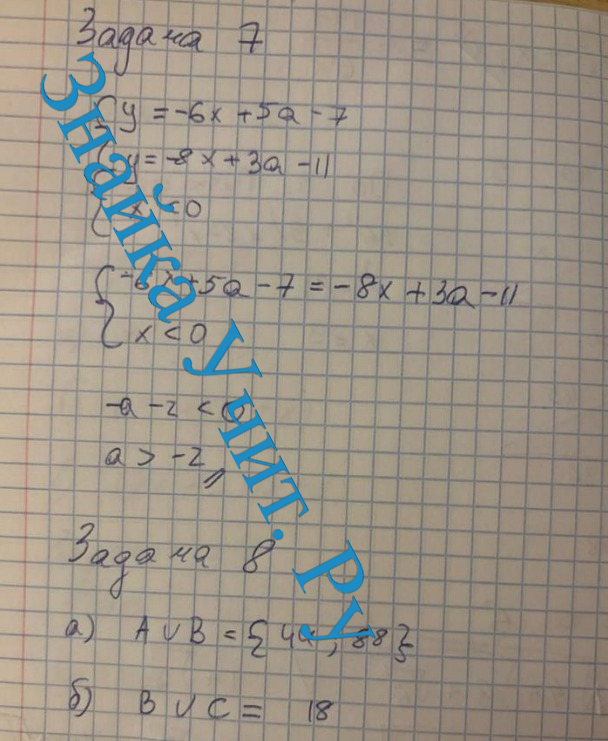 Задача 7
{ y = -6x + 5a - 7
y = -8x + 3a - 11
x < 0
{ -6x + 5a - 7 = -8x + 3a - 11
x < 0
-a - 2 < 0
a > -2
Задача 8
а) A ∪ B = { 44 , 88 }
б) B ∪ C = 18
Знайка Учит. Ру